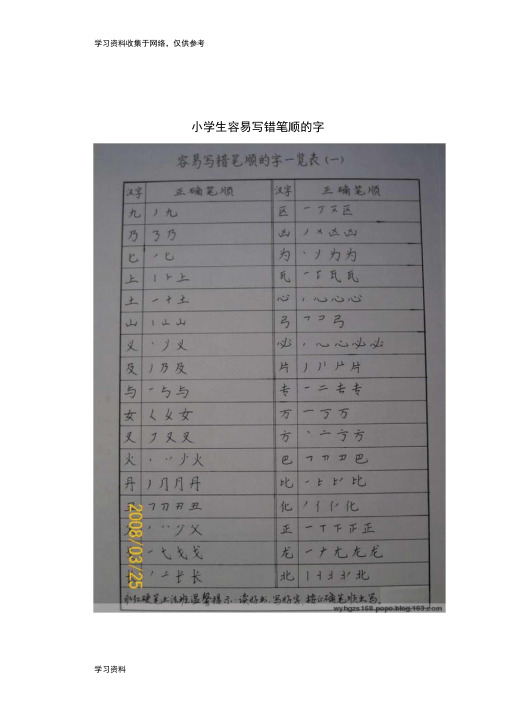 学习资料收集于网络，仅供参考
小学生容易写错笔顺的字
容易写错笔顺的字一览表（一）
汉字 正确笔顺 汉字 正确笔顺
九 丿九 区 一丆又区
乃 𠄎乃 凶 丿㐅凶凶
匕 丿匕 为 丶丿为为
上 丨⺊上 瓦 一瓦瓦
土 一十土 心 丶心心心
山 丨山山 弓 𠃍コ弓
义 丶丿义 必 丶心心必必
及 丿乃及 片 丿丨片片
与 一与与 专 一二专专
女 𡿨女女 万 一丆万
叉 フ又叉 方 丶亠方方
火 丶丷火火 巴 𠃍巴巴巴
丹 丿⺆月丹 比 一比比比
𠃍刀丑丑 化 丿亻化化
丶丷父 正 一丅下正正
一七戈戈 龙 一ナ尢龙龙
丿二长长 北 丨北北北北
硬笔书法班温馨提示：读好书，写好字，按正确笔顺书写。
2008/03/25
wyhgzs168.popo.blog.163.com
学习资料